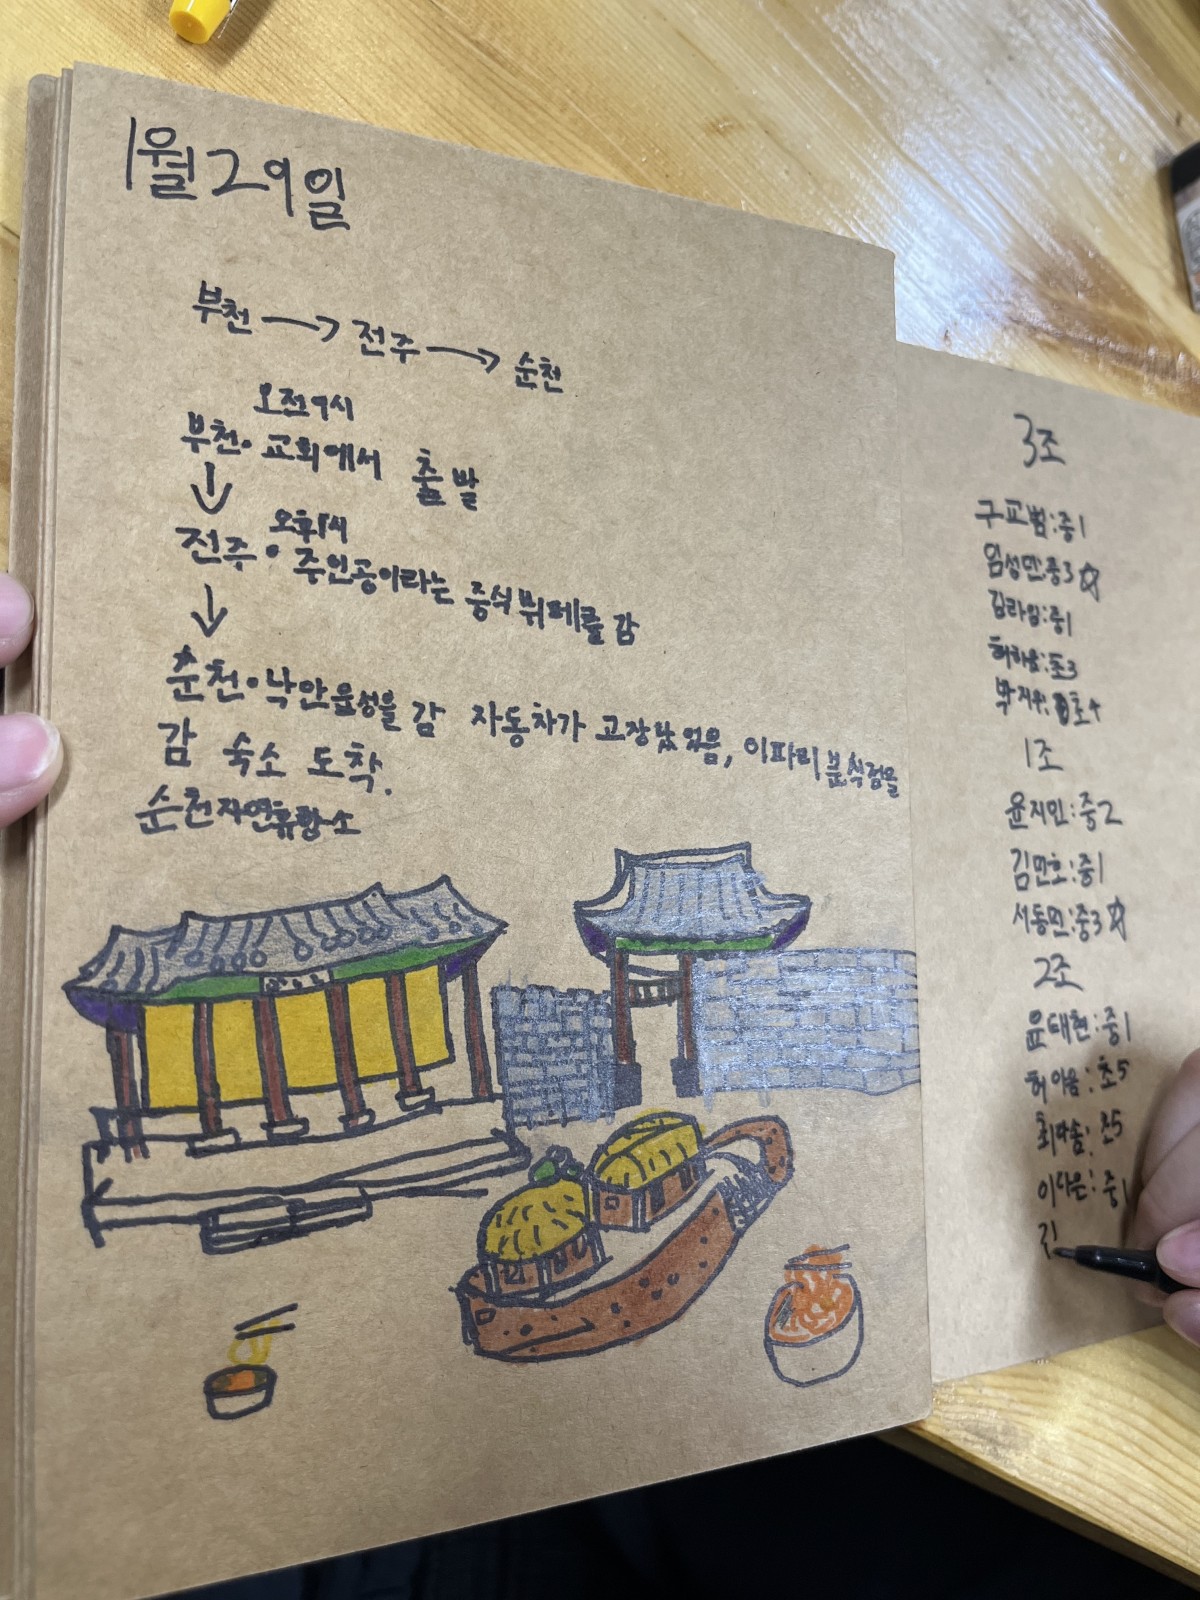 1월 29일
부천 → 전주 → 순천
오전 9시
부천. 교회에서 출발
↓
오후 1시
전주. 주인공이라는 중식 뷔페를 감
↓
순천. 낙안읍성을 감 자동차가 고장났었음, 이파리 분식점을
감 숙소 도착.
순천자연휴양소
3조
구교범:중1
임성민:중3☆
김라임:중1
허하음:초3
박지우:초4
1조
윤지민:중2
김민호:중1
서동민:중3☆
2조
윤태현:중1
허이음:초5
최다솜:초5
이다은:중1